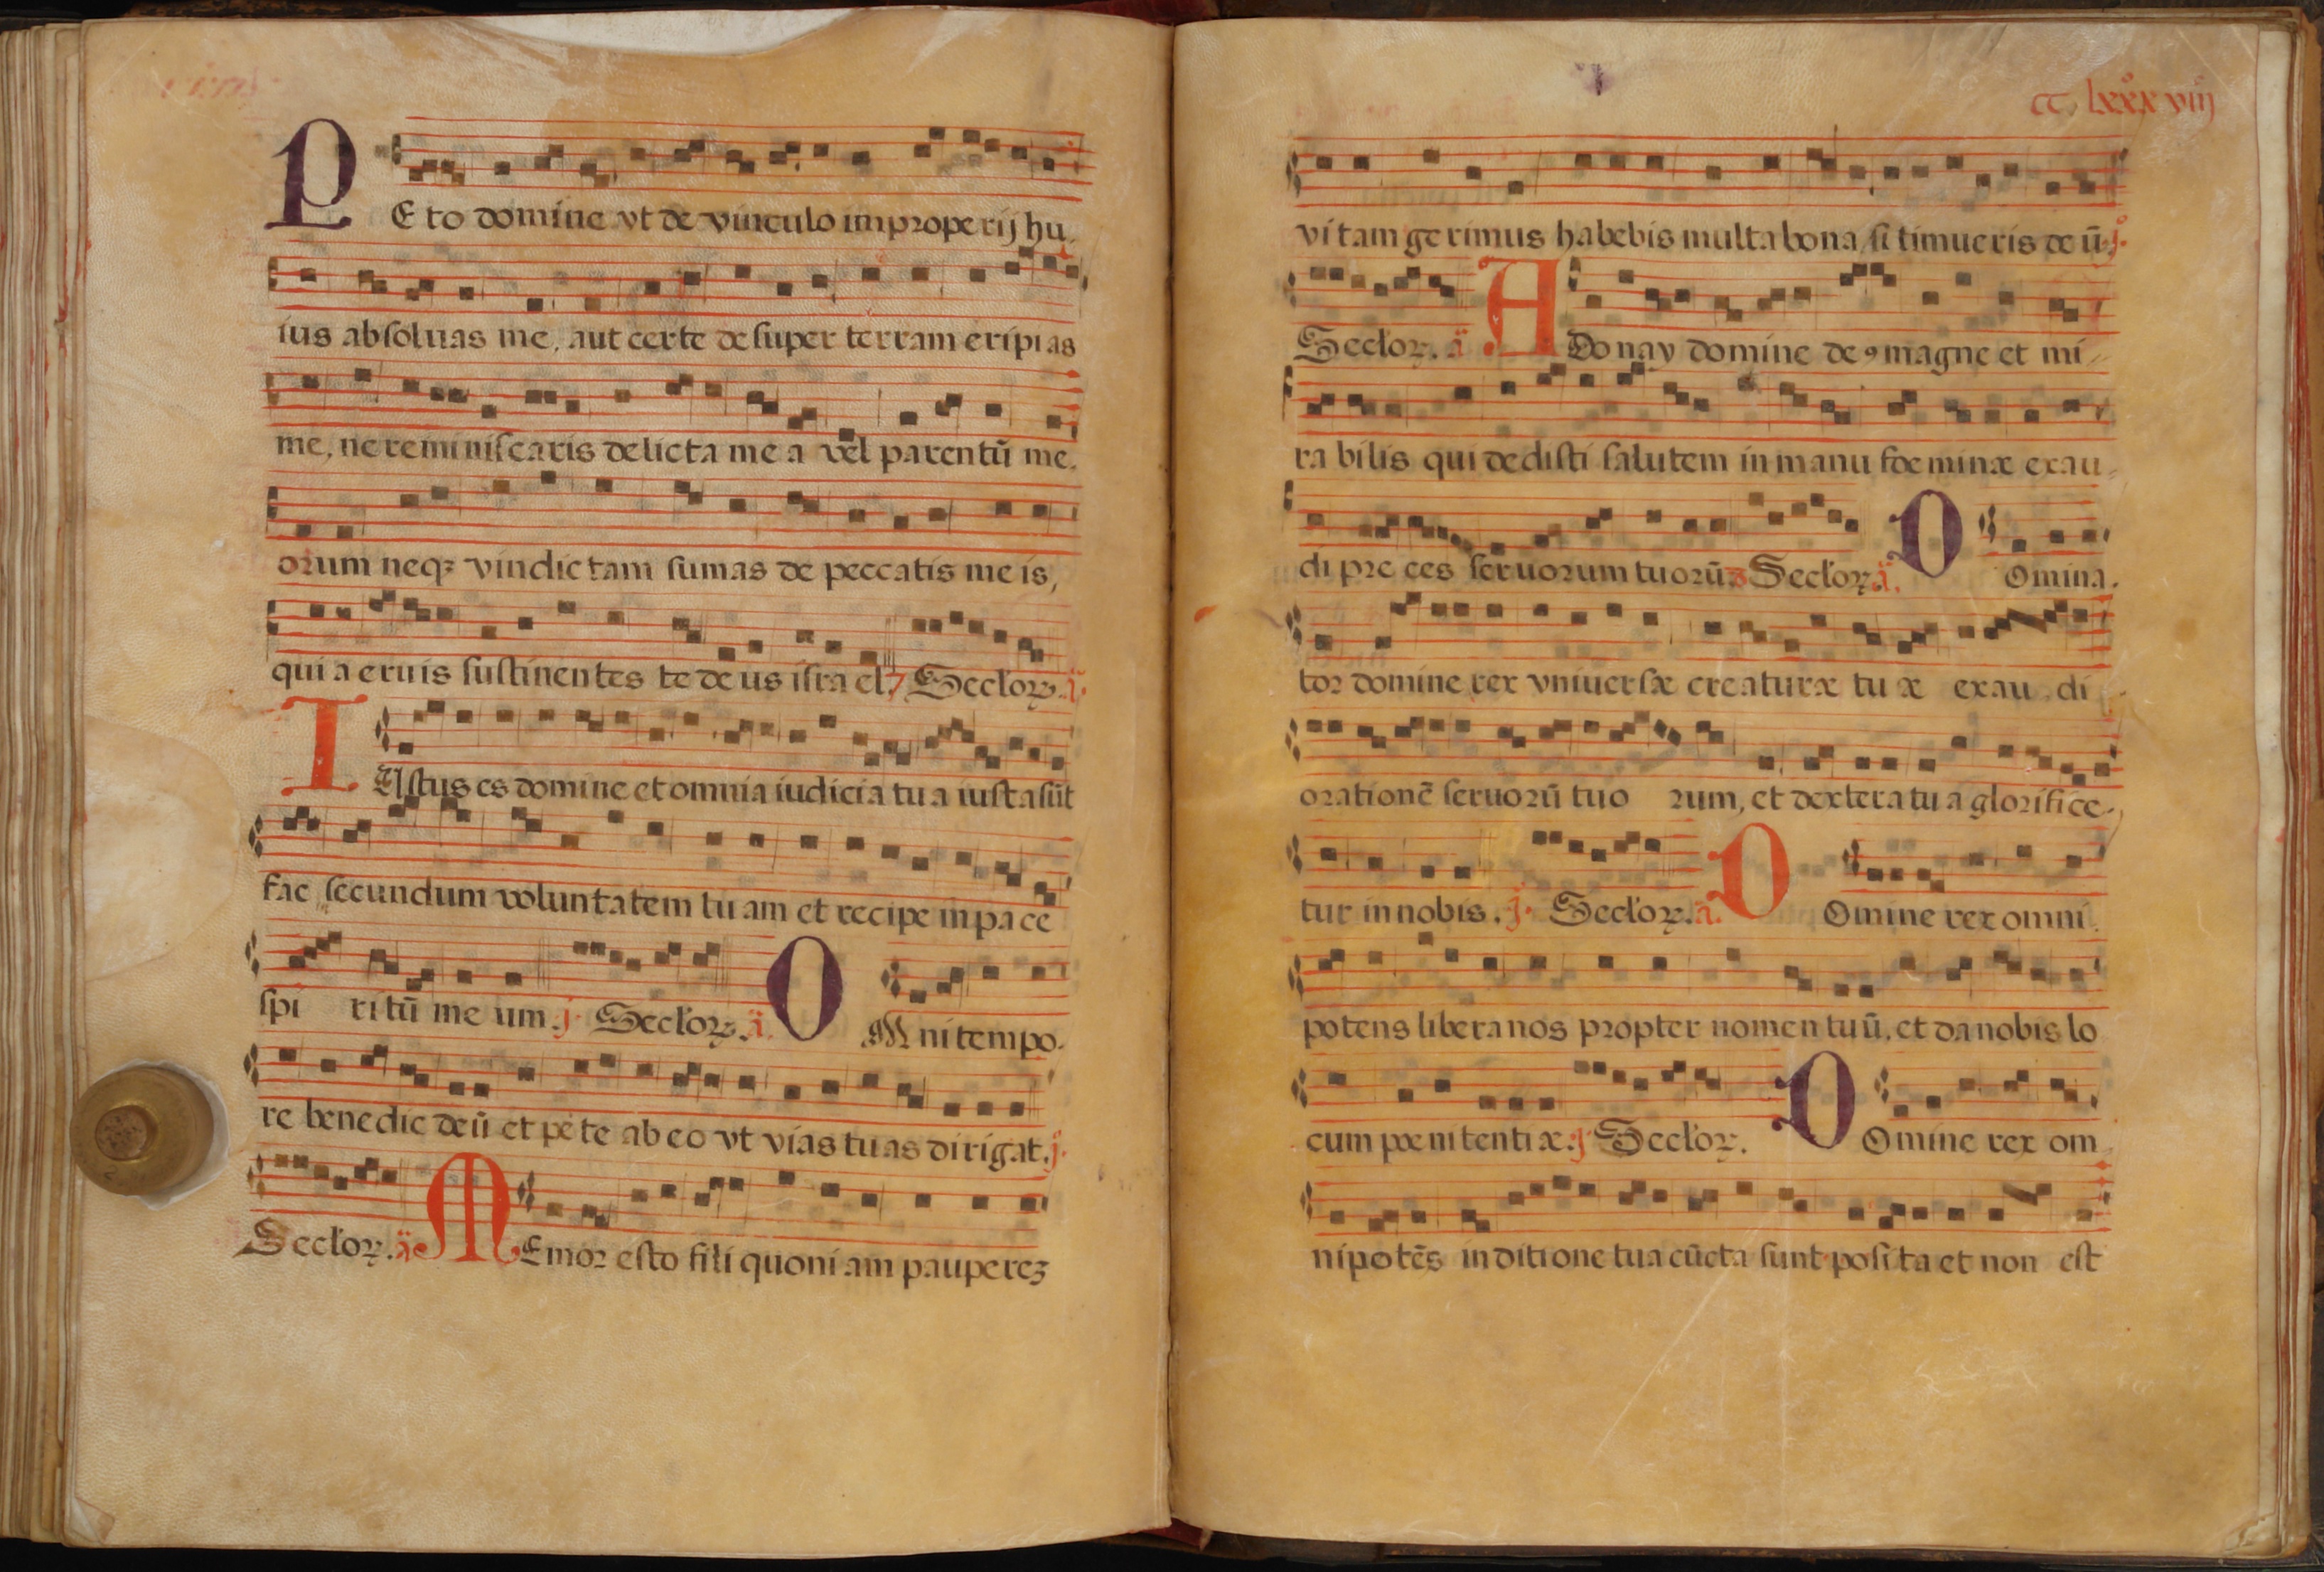 PEto domine vt de vinculo improperij hu,
ius absoluas me, aut certe desuper terram eripias
me, ne reminiscaris delicta mea vel parentū me,
orum neqꝫ vindictam sumas de peccatis meis,
quia eruis sustinentes te deus israel. 7 Seclorꝝ. ā.
IUstus es domine et omnia iudicia tua iusta sūt
fac secundum voluntatem tuam et recipe in pace
spiritū meum. j. Seclorꝝ. ä. OMni tempo.
re benedic deū et pete ab eo vt vias tuas dirigat. j.
Seclorꝝ. ä MEmor esto fili quoniam paupereȝ
cc, lxxxviij
vitam gerimus habebis multa bona, si timueris deū. j.
Seclorꝝ. ä ADonay domine deꝰ magne et mi
rabilis qui dedisti salutem in manu fœminæ exau
di preces seruorum tuorū. 8 Seclorꝝ ä. DOmina.
tor domine rex vniuersæ creaturæ tuæ exaudi
orationē seruorū tuorum, et dextera tua glorifice.
tur in nobis. j. Seclorꝝ. ä. DOmine rex omni.
potens libera nos propter nomen tuū, et da nobis lo
cum pœnitentiæ. j. Seclorꝝ. DOmine rex om
nipotēs in ditione tua cūcta sunt posita et non est